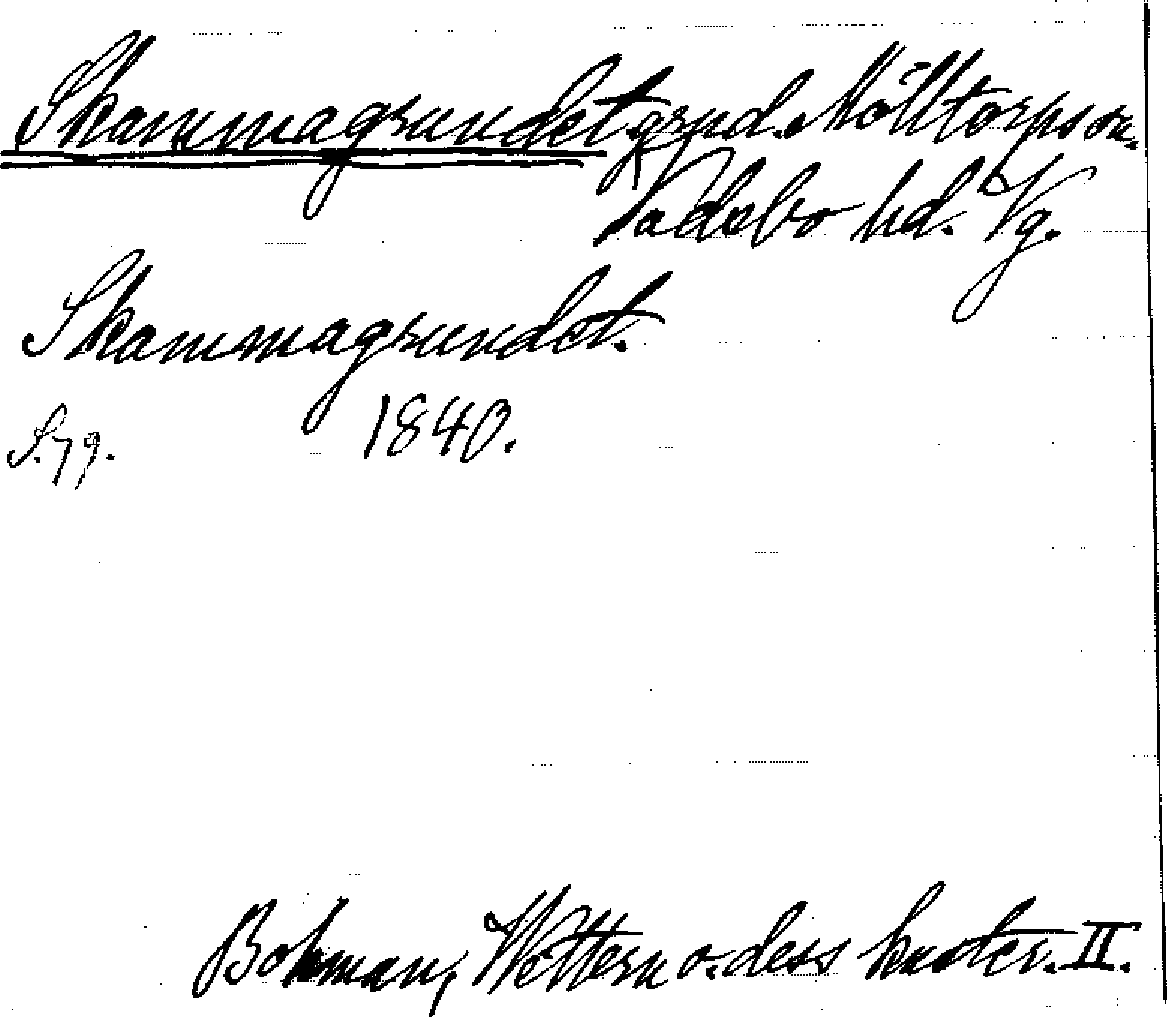 Skammagrundet grnd. Mölltorps sn.
Vadsbo hd. Vg.
Skammagrundet.
1840.
S. 79.
Bohman, Wettern o. dess kuster. II.